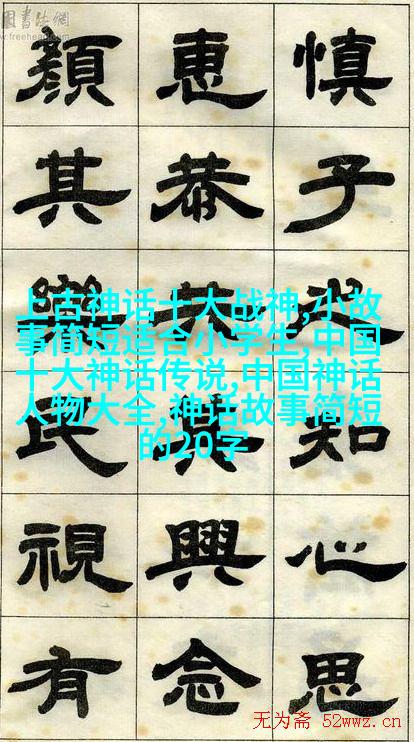 國書法網
慎子知心思
惠恭其興念
顏其樂民視有
上古神话十大战神,小故
事简短适合小学生,中国
十大神话传说,中国神话
人物大全,神话故事简短
的20字
无为斋 52wwz.cn